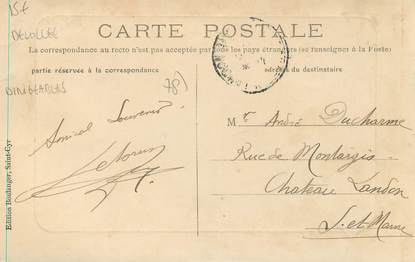 15 €
CARTE POSTALE
La correspondance au recto n'est pas acceptée par tous les pays étrangers (se renseigner à la Poste)
partie réservée à la correspondance
adresse du destinataire
DIRIGEABLES
78)
Amical Souvenir
Mr André Ducharme
Rue de Montargis
Chateau Landon
S. et Marne
Edition Boulanger, Saint-Cyr